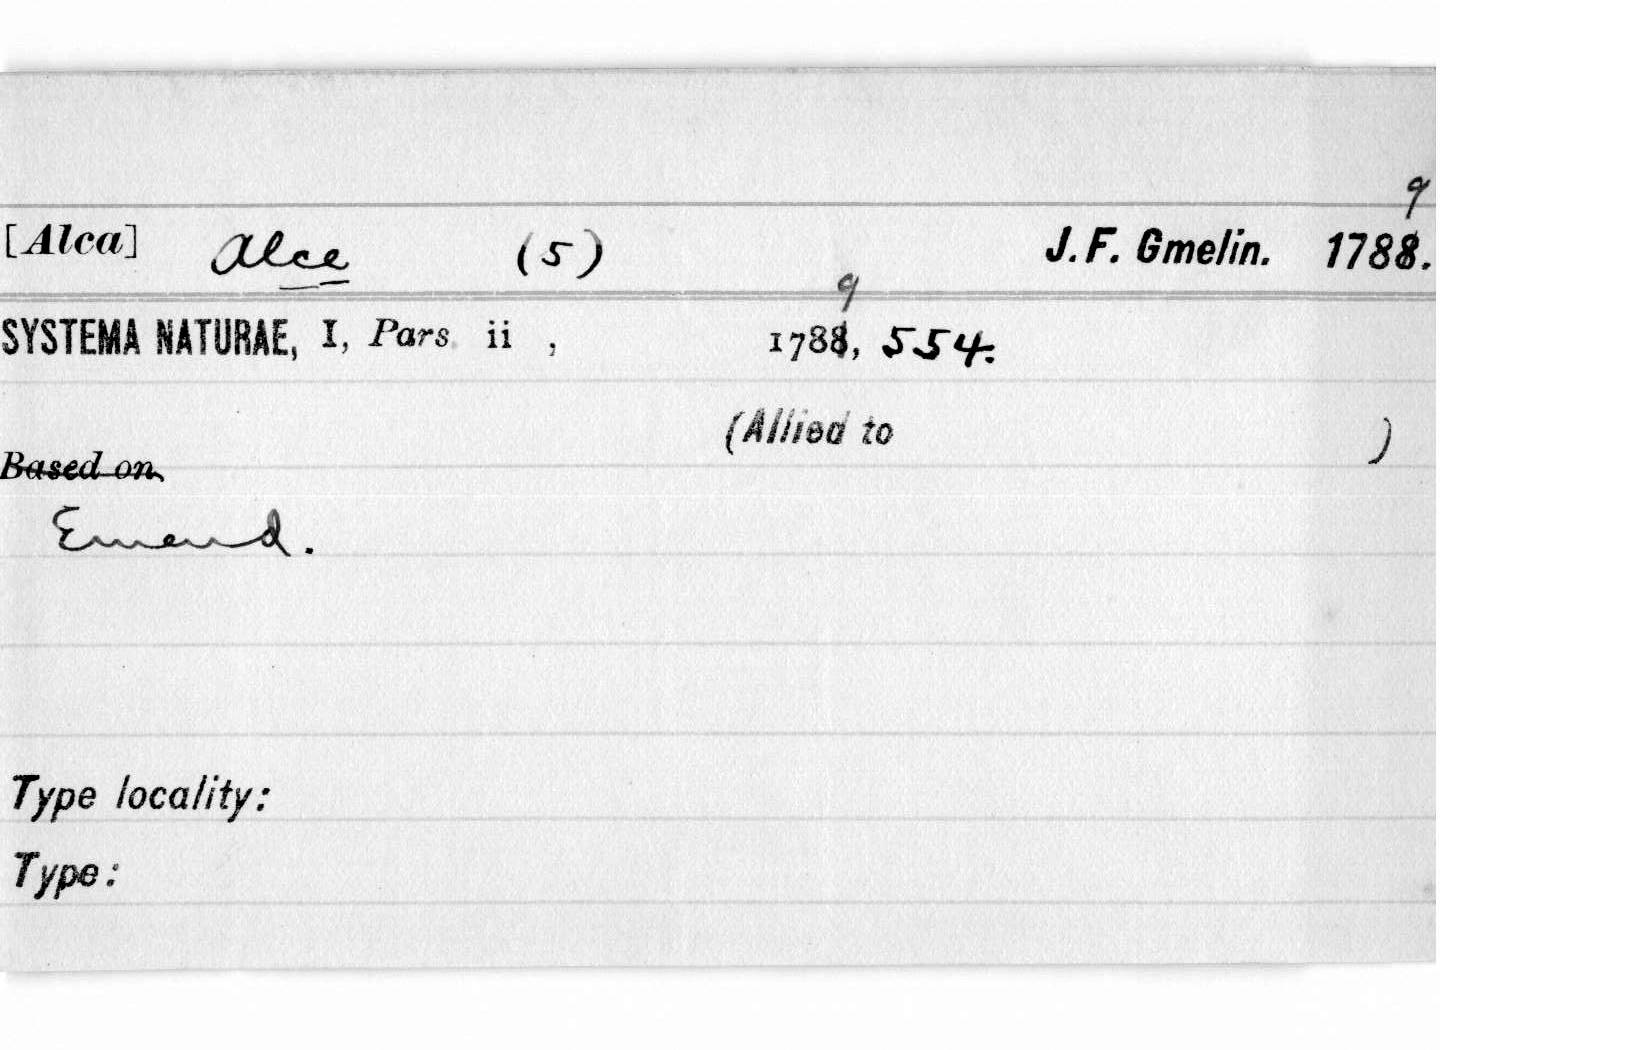 [Alca] Alce (5) J. F. Gmelin. 1788. 9
SYSTEMA NATURAE, I, Pars ii , 1788, 9 554.
(Allied to )
Based on
Emend.
Type locality:
Type: